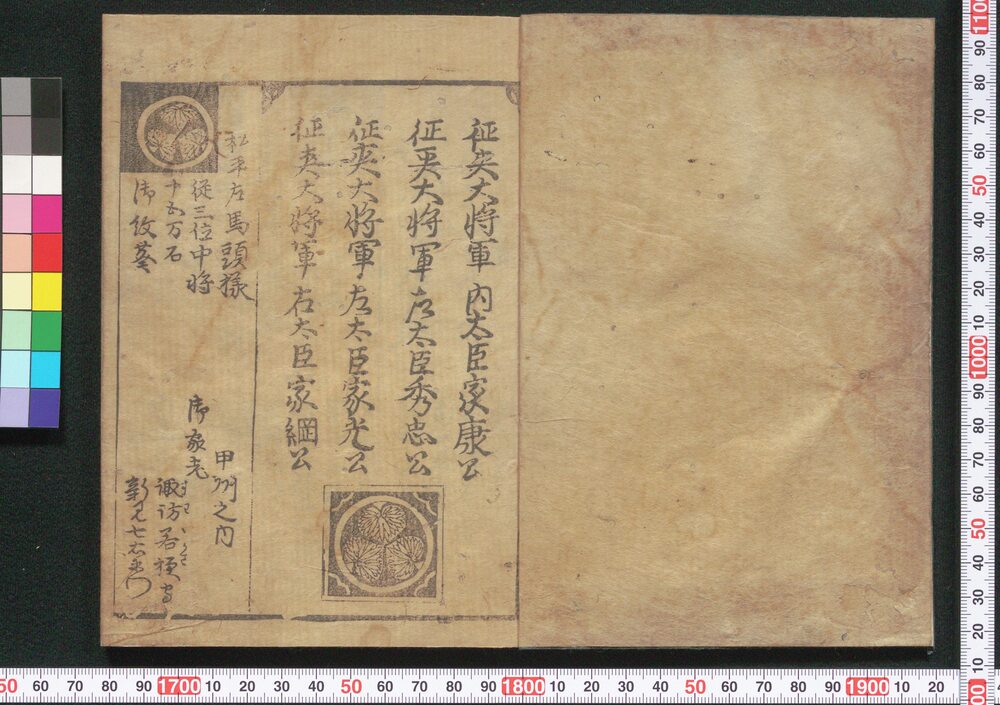 征夷大将軍 内太臣家康公
征夷大将軍右太臣秀忠公
征夷大将軍左太臣家光公
征夷大将軍右太臣家綱公
松平左馬頭様
従三位中将
十五万石
御紋葵
甲州之内
御家老
諏訪若狭守
すは わかさ
新見七右衛門
50 60 70 80 90 1700 10 20 30 40 50 60 70 80 90 1800 10 20 30 40 50 60 70 80 90 1900 10 20
1100 90 80 70 60 50 40 30 20 10 1000 90 80 70 60 50 40 30 20 10